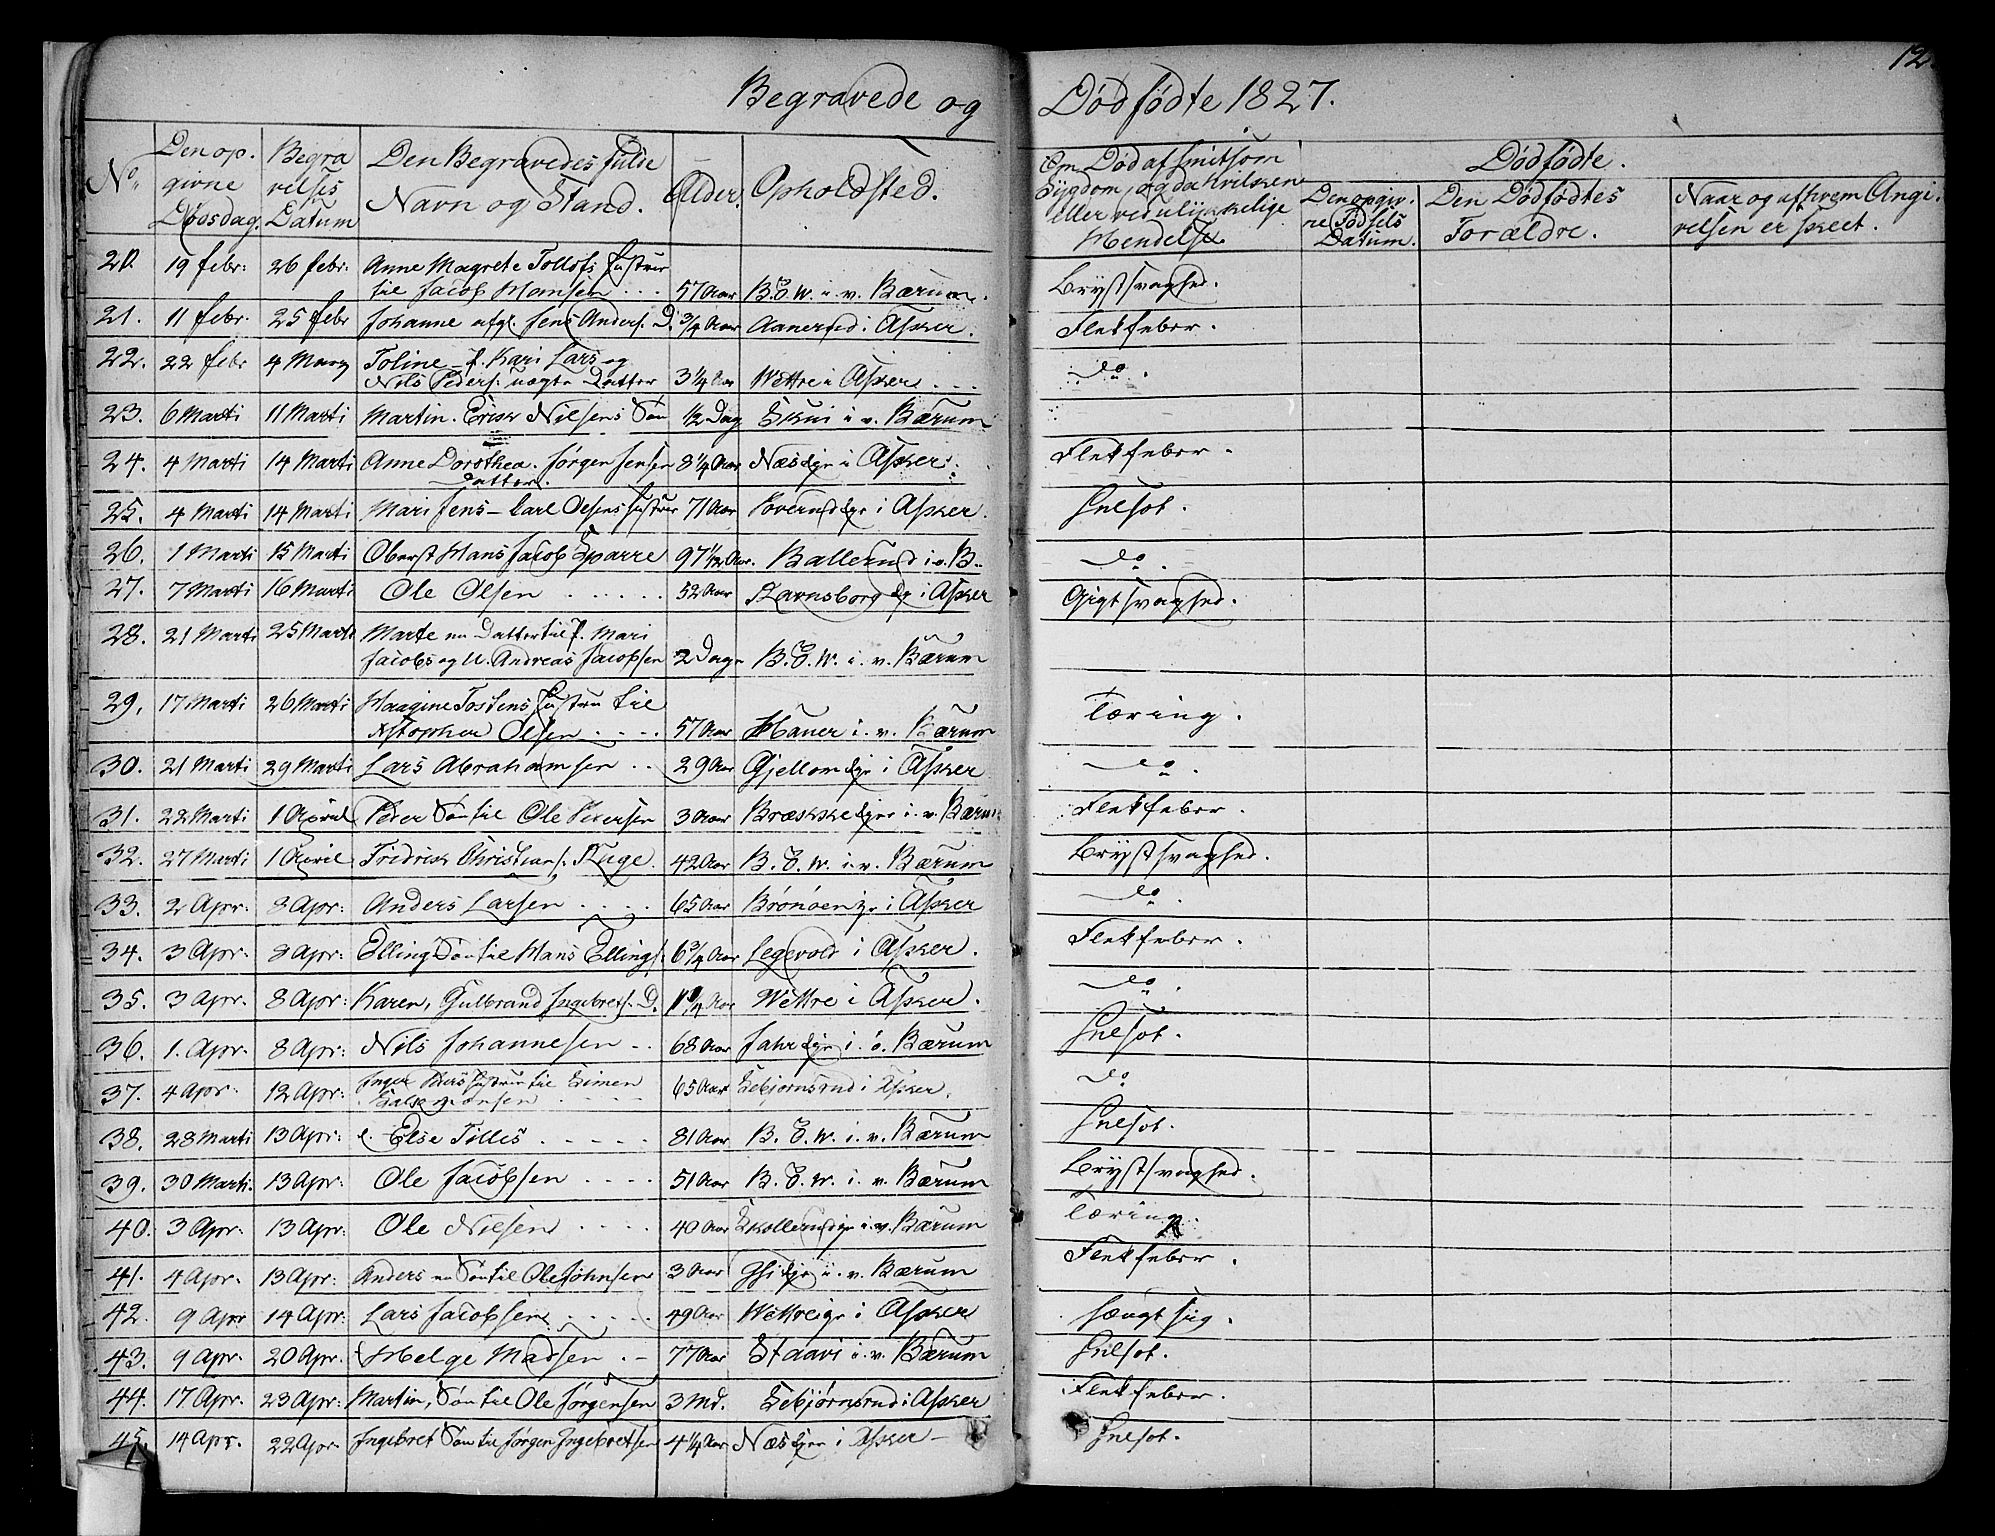 12
Begravede og Dødfødte 1827.
No. Den opgivne Dødsdag. Begravelses Datum Den Begravedes fulde Navn og Stand. Alder. Opholdsted. Om Død af smitsom Sygdom, og da hvilken eller ved ulykkelige Hendelse. Dødfødte.
Den opgivne Fødsels Datum. Den Dødfødtes Forældre. Naar og af hvem Angivelsen er skeet.
20. 19 febr: 26 febr: Anne Magrete Tollofs Hustrue
til Jacob Hansen . . . 57 Aar B. E. W. i v. Bærum. Brystsvaghed.
21. 11 febr. 25 febr Johanne Jens Anders. D. 3/4 Aar Aanerud i Asker. Flekfeber.
22. 22 febr 4 Marz Toline f. Kari Lars og
Nils Peders: uægte Datter 3 1/4 Aar Wettre i Asker . . . do.
23. 6 Marti 11 Marti Martin. Erik Nilsens Søn 1/2 Dag Skui i v. Bærum
24. 4 Marti 14 Marti Anne Dorothea. Jørgen Jensen 8 1/4 Aar Næs i Asker. Flekfeber.
Datter.
25. 4 Marti 14 Marti Mari Jens - Carl Olsens Hustrue 71 Aar i Asker. Snesot.
26. 1 Marti 15 Marti Oberst Hans Jacob Sparre 97 1/12 Aar. Ballerud i v. B. do.
27. 7 Marti 16 Marti Ole Olsen . . . . . . 52 Aar i Asker Gigtsvaghed.
28. 21 Marti 25 Marti Marte Datter til P. Mari
Jacobs og U. Andreas Jacobsen 2 Dage B. E. W. i. v. Bærum
29. 17 Marti 26 Marti Haagine Tostens Hustru til
Olsen . . . . 57 Aar Hauer i. v. Bærum Tæring.
30. 21 Marti 29 Marti Lars Abrahamsen . . 29 Aar Gjellom i Asker do.
31. 22 Marti 1 April Peder Søn til Ole Pedersen 3 Aar i. v. Bærum Flekfeber.
32. 27 Marti 1 April Fridrik Christians: 42 Aar B. E. W. i. v. Bærum Brystsvaghed.
33. 2 Apr: 8 Apr: Anders Larsen . . . . 65 Aar Brønøen i Asker do.
34. 3 Apr: 8 Apr: Elling Søn til Hans Ellings: 6 3/4 Aar Legevold i Asker. Flekfeber.
35. 3 Apr. 8 Apr: Karen, Gulbrand Ingebrets. D. Aar Wettre i Asker. do.
36. 1. Apr. 8 Apr: Nils Johannesen . . 68 Aar i. ø. Bærum Snesot.
37. 4 Apr. 12 Apr: Inger Hustrue til Simen
. . . . 65 Aar Eebjørnsrud i Asker. do
38. 28 Marti 13 Apr: e. Else Tollis . . . . . 81 Aar B. E. W. i. v. Bærum Snesot.
39. 30 Marti. 13 Apr: Ole Jacobsen . . . . 51 Aar B. E. W. i. v. Bærum Brystsvaghed.
40. 3 Apr: 13 Apr: Ole Nilsen . . . . 40 Aar i. v. Bærum Tæring.
41. 4 Apr. 13 Apr: Anders Søn til Ole Johnsen 3 Aar i. v. Bærum Flekfeber.
42. 9 Apr 14 Apr: Lars Jacobsen . . . . . 49 Aar Wettre i Asker
43. 9 Apr. 20 Apr. Helge Madsen . - 77 Aar Staavi i. v. Bærum Snesot.
44. 17 Apr. 23 Apr: Martin, Søn til Ole Jørgensen 3 Md. Eebjørnsrud i Asker Flekfeber.
45. 14 Apr. 22 Apr. Ingebret Søn til Jørgen Ingebretsen 4 1/4 Aar Næs i Asker - Snesot.